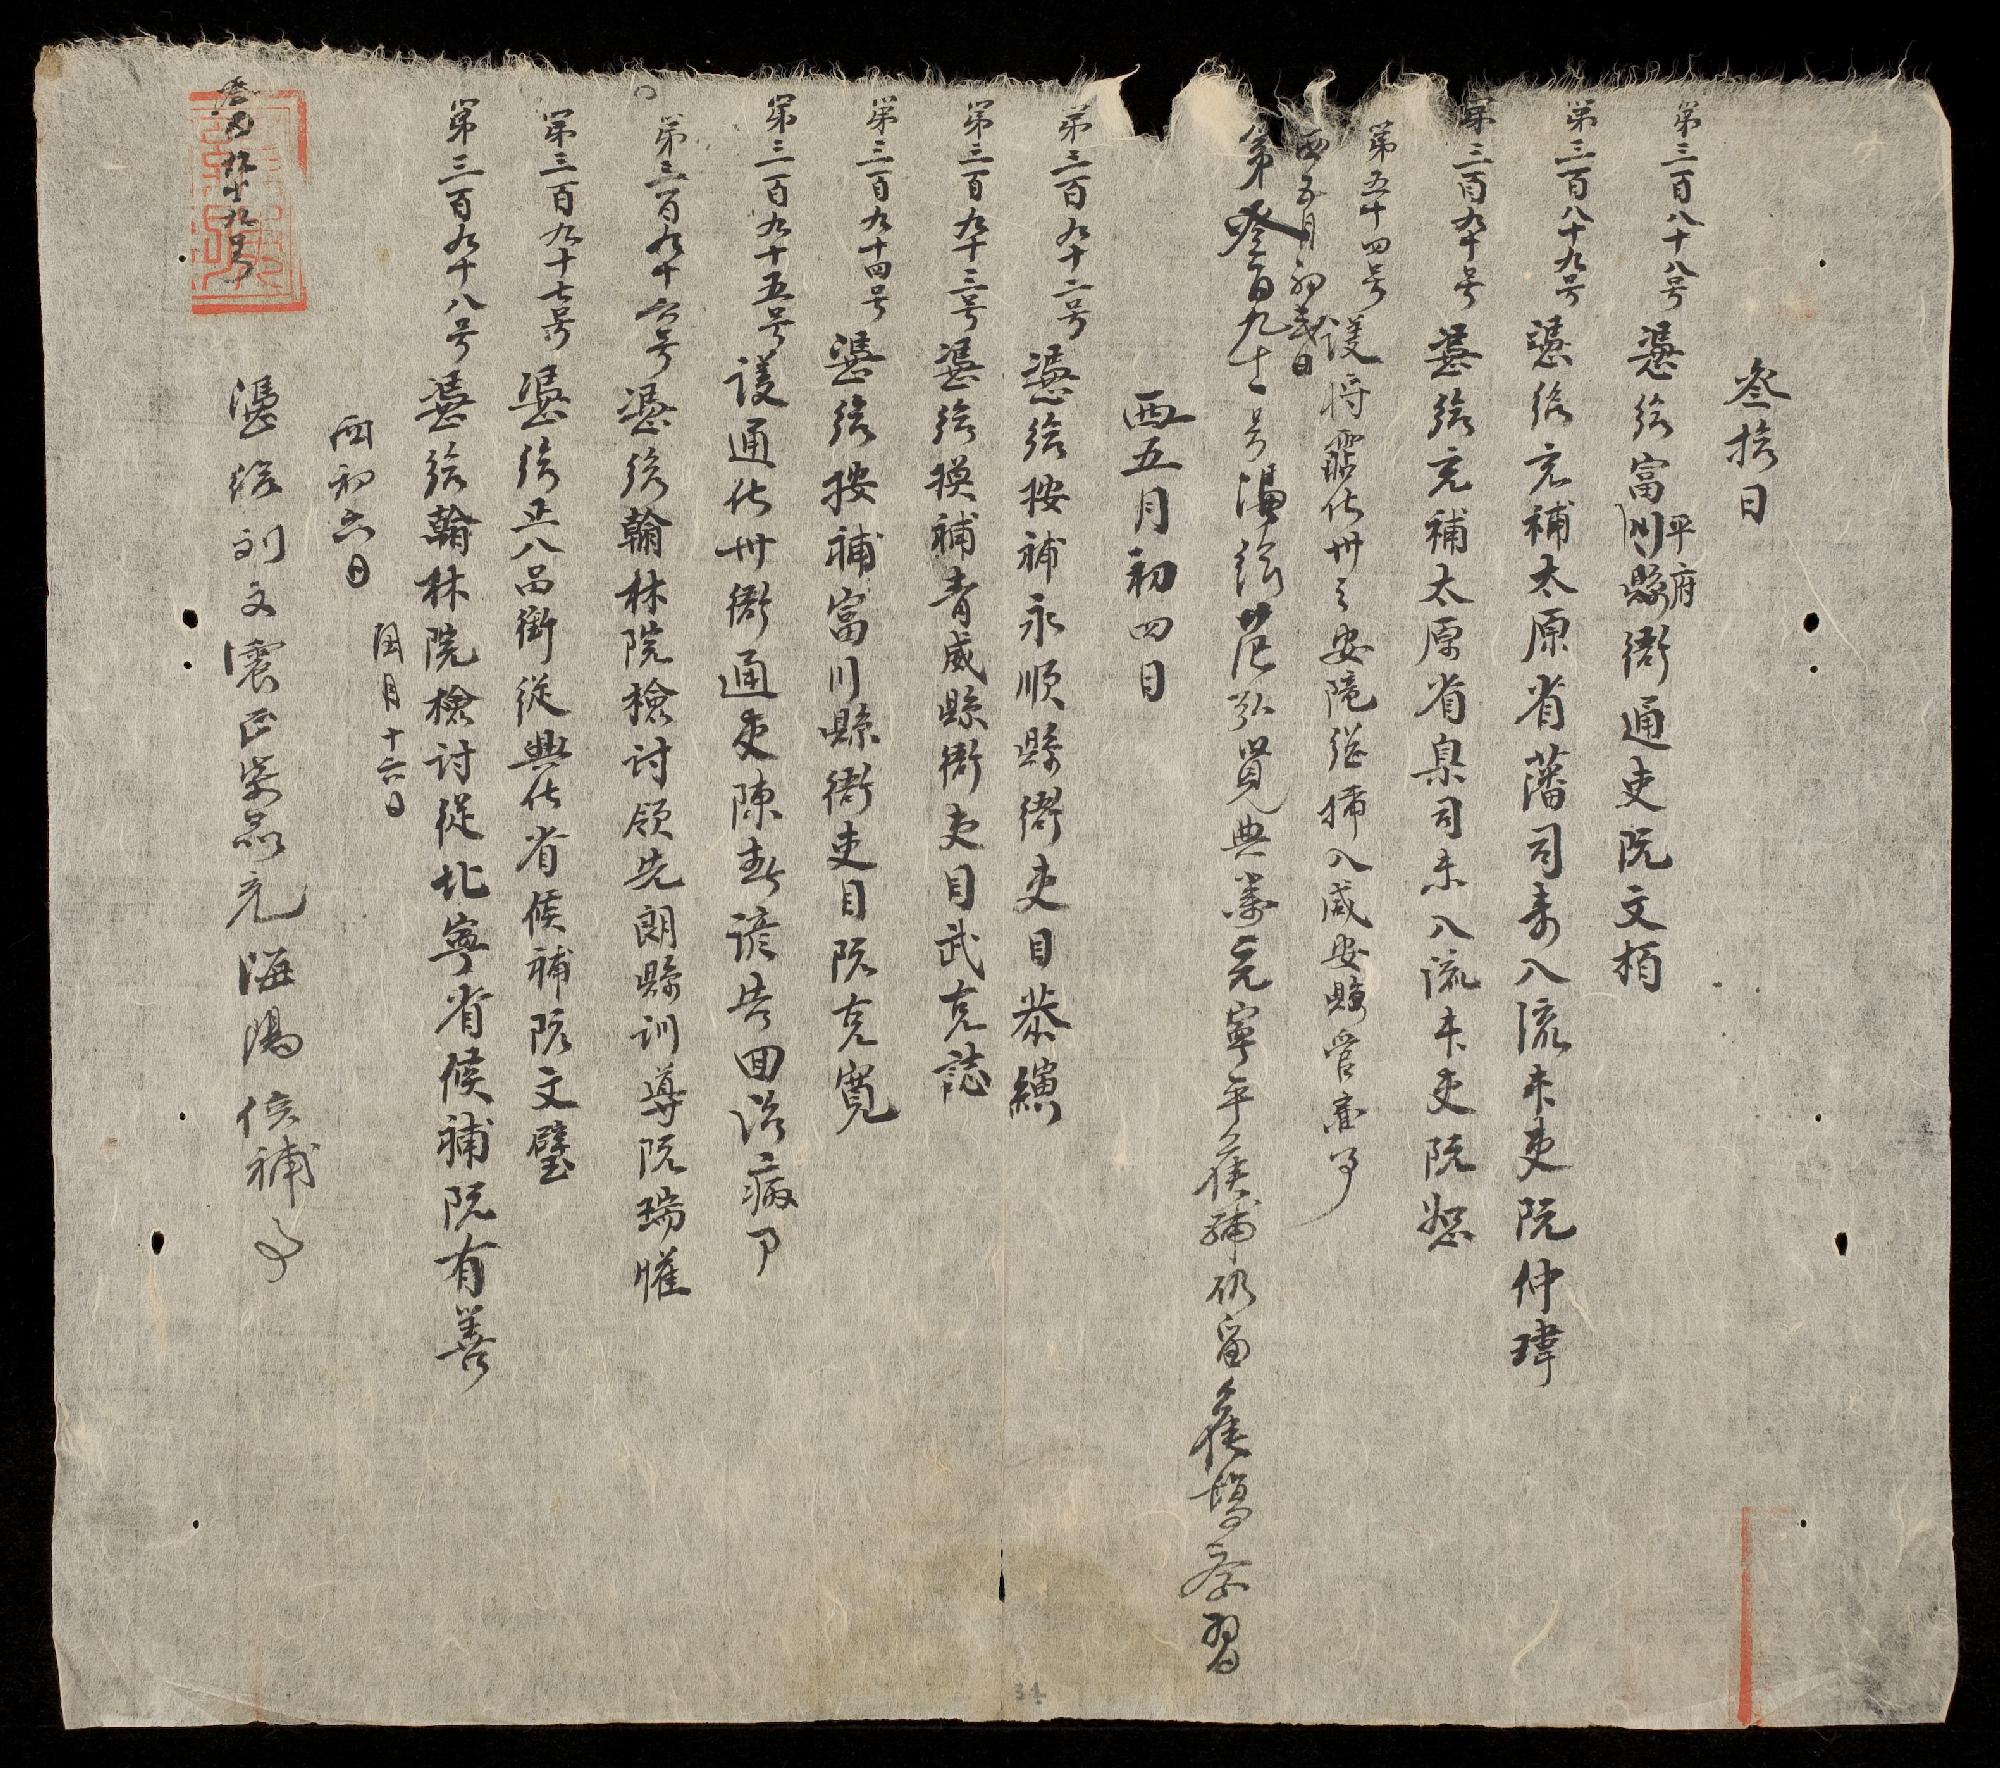 叁拾日
第三百八十八号 憑給富川縣衙通吏阮文栢
平府
第三百八十九号 憑給充補太原省藩司未入流未吏阮仲瑋
第三百九十号 憑給充補太原省臬司未入流未吏阮恕
第五十四号 護將霑化州之安隴總揷入咸安縣管
西五月初弍日
第叄百九十一号 憑給范弘貫典 寧平候補仍留 習
西五月初四日
第三百九十二号 憑給按補永順縣衙吏目恭縯
第三百九十三号 憑給換補青威縣衙吏目武克誌
第三百九十四号 憑給按補富川縣衙吏目阮克寬
第三百九十五号 護通化州衙通吏陳 諺告回治病
第三百九十六号 憑給翰林院檢討領先朗縣訓導阮瑞㒞
第三百九十七号 憑給正八品銜從興化省候補阮文璧
第三百九十八号 憑給翰林院檢討從北寧省候補阮有善
西初六日
閏月十六日
叁百玖十九号
憑給刘文震正柒品充海陽候補